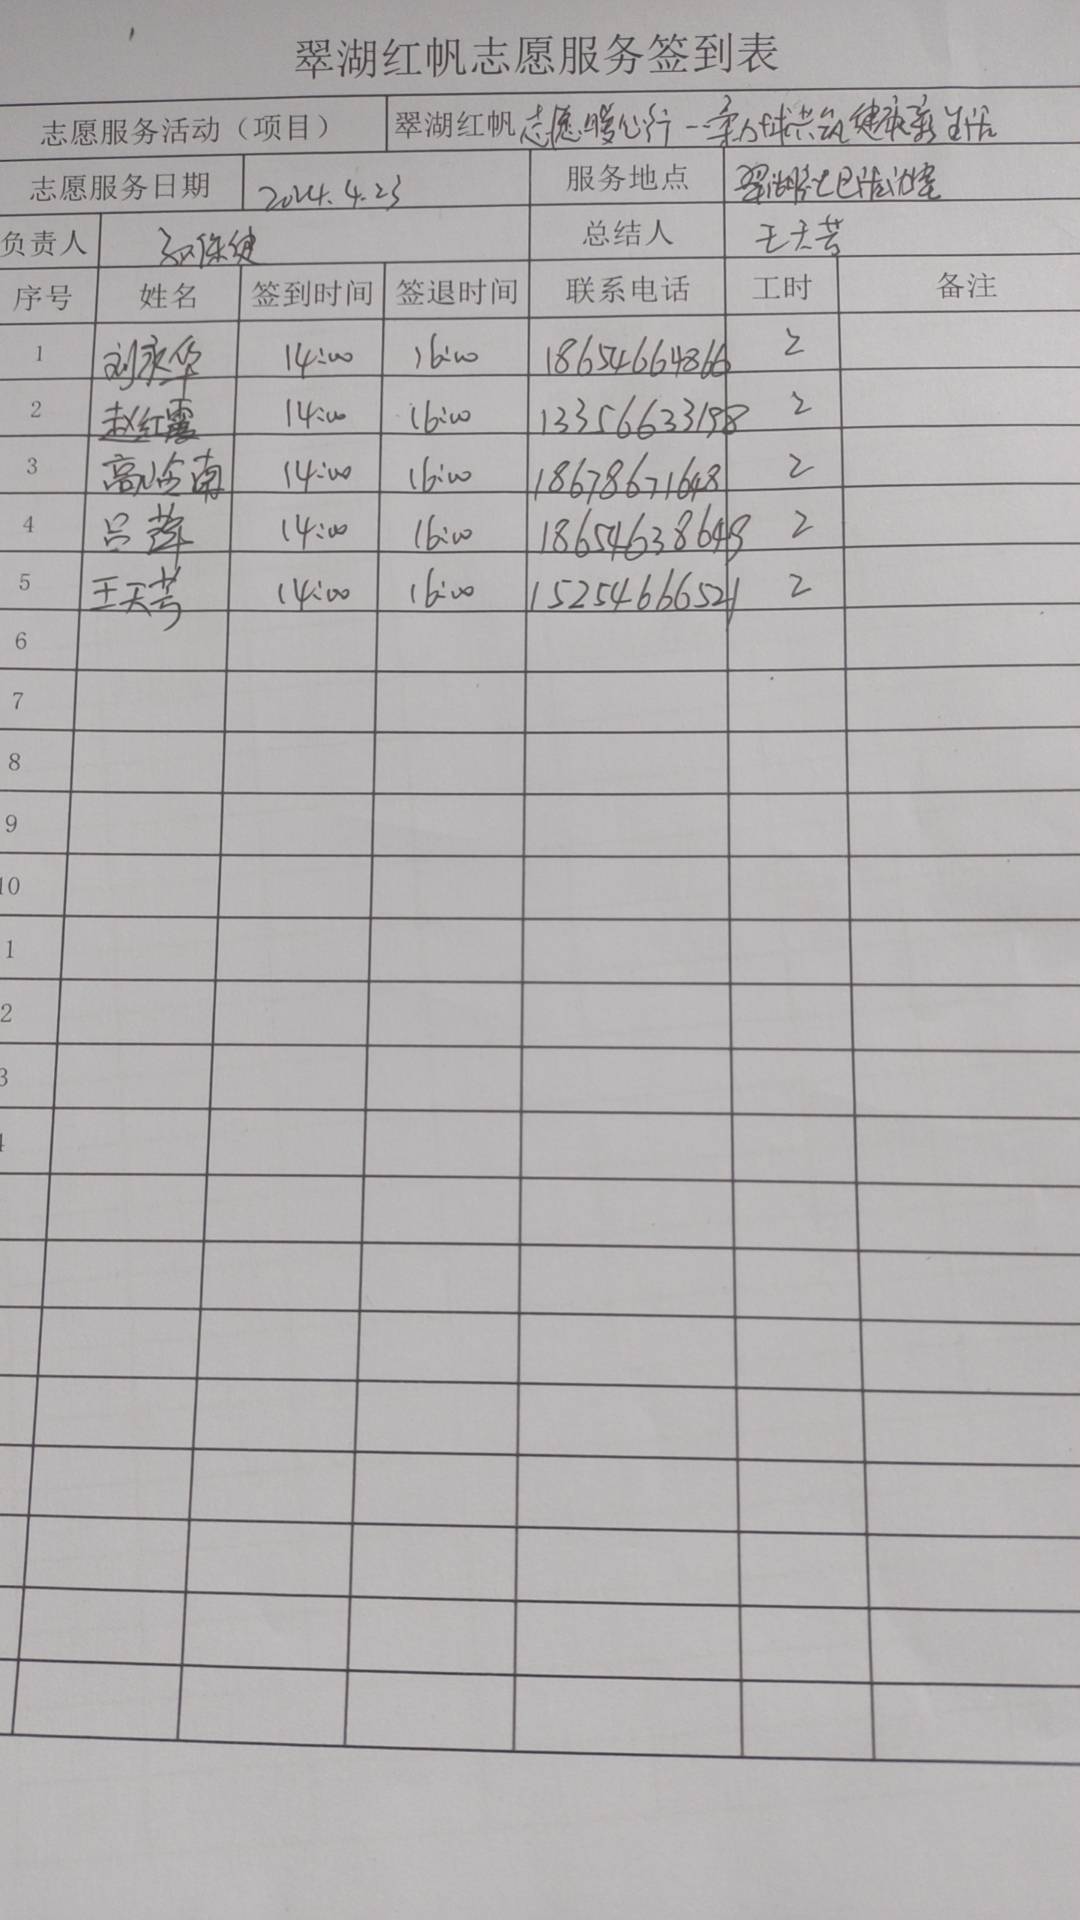 翠湖红帆志愿服务签到表
志愿服务活动（项目） 翠湖红帆志愿暖心行--柔力球共筑健康新生活
志愿服务日期 2024.4.23 服务地点 翠湖
负责人 总结人 王天芳
序号 姓名 签到时间 签退时间 联系电话 工时 备注
1 刘永华 14:00 16:00 18654664866 2
2 赵红霞 14:00 16:00 13356633198 2
3 高岭南 14:00 16:00 18678671648 2
4 吕萍 14:00 16:00 18654638649 2
5 王天芳 14:00 16:00 15254666521 2
6
7
8
9
10
1
2
3
4